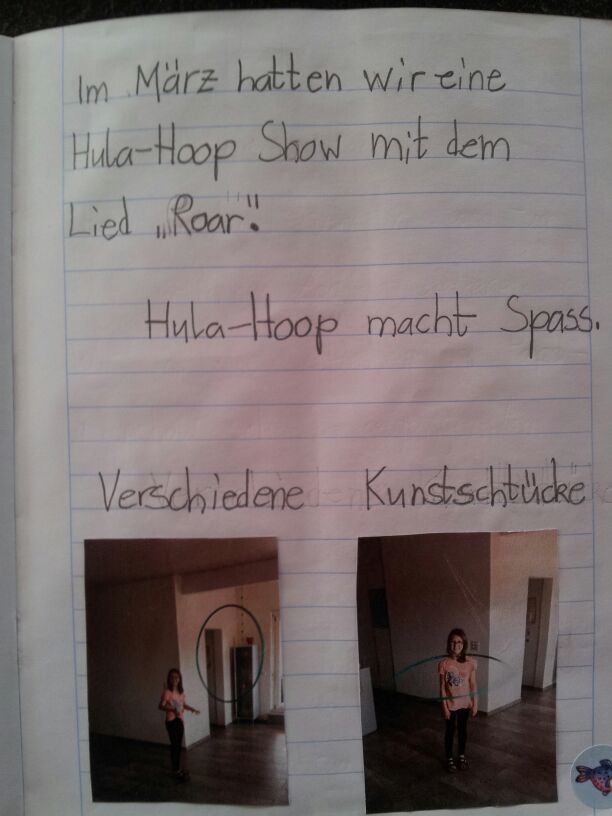 Im März hatten wir eine
Hula-Hoop Show mit dem
Lied „Roar".
Hula-Hoop macht Spass.
Verschiedene Kunstschtücke